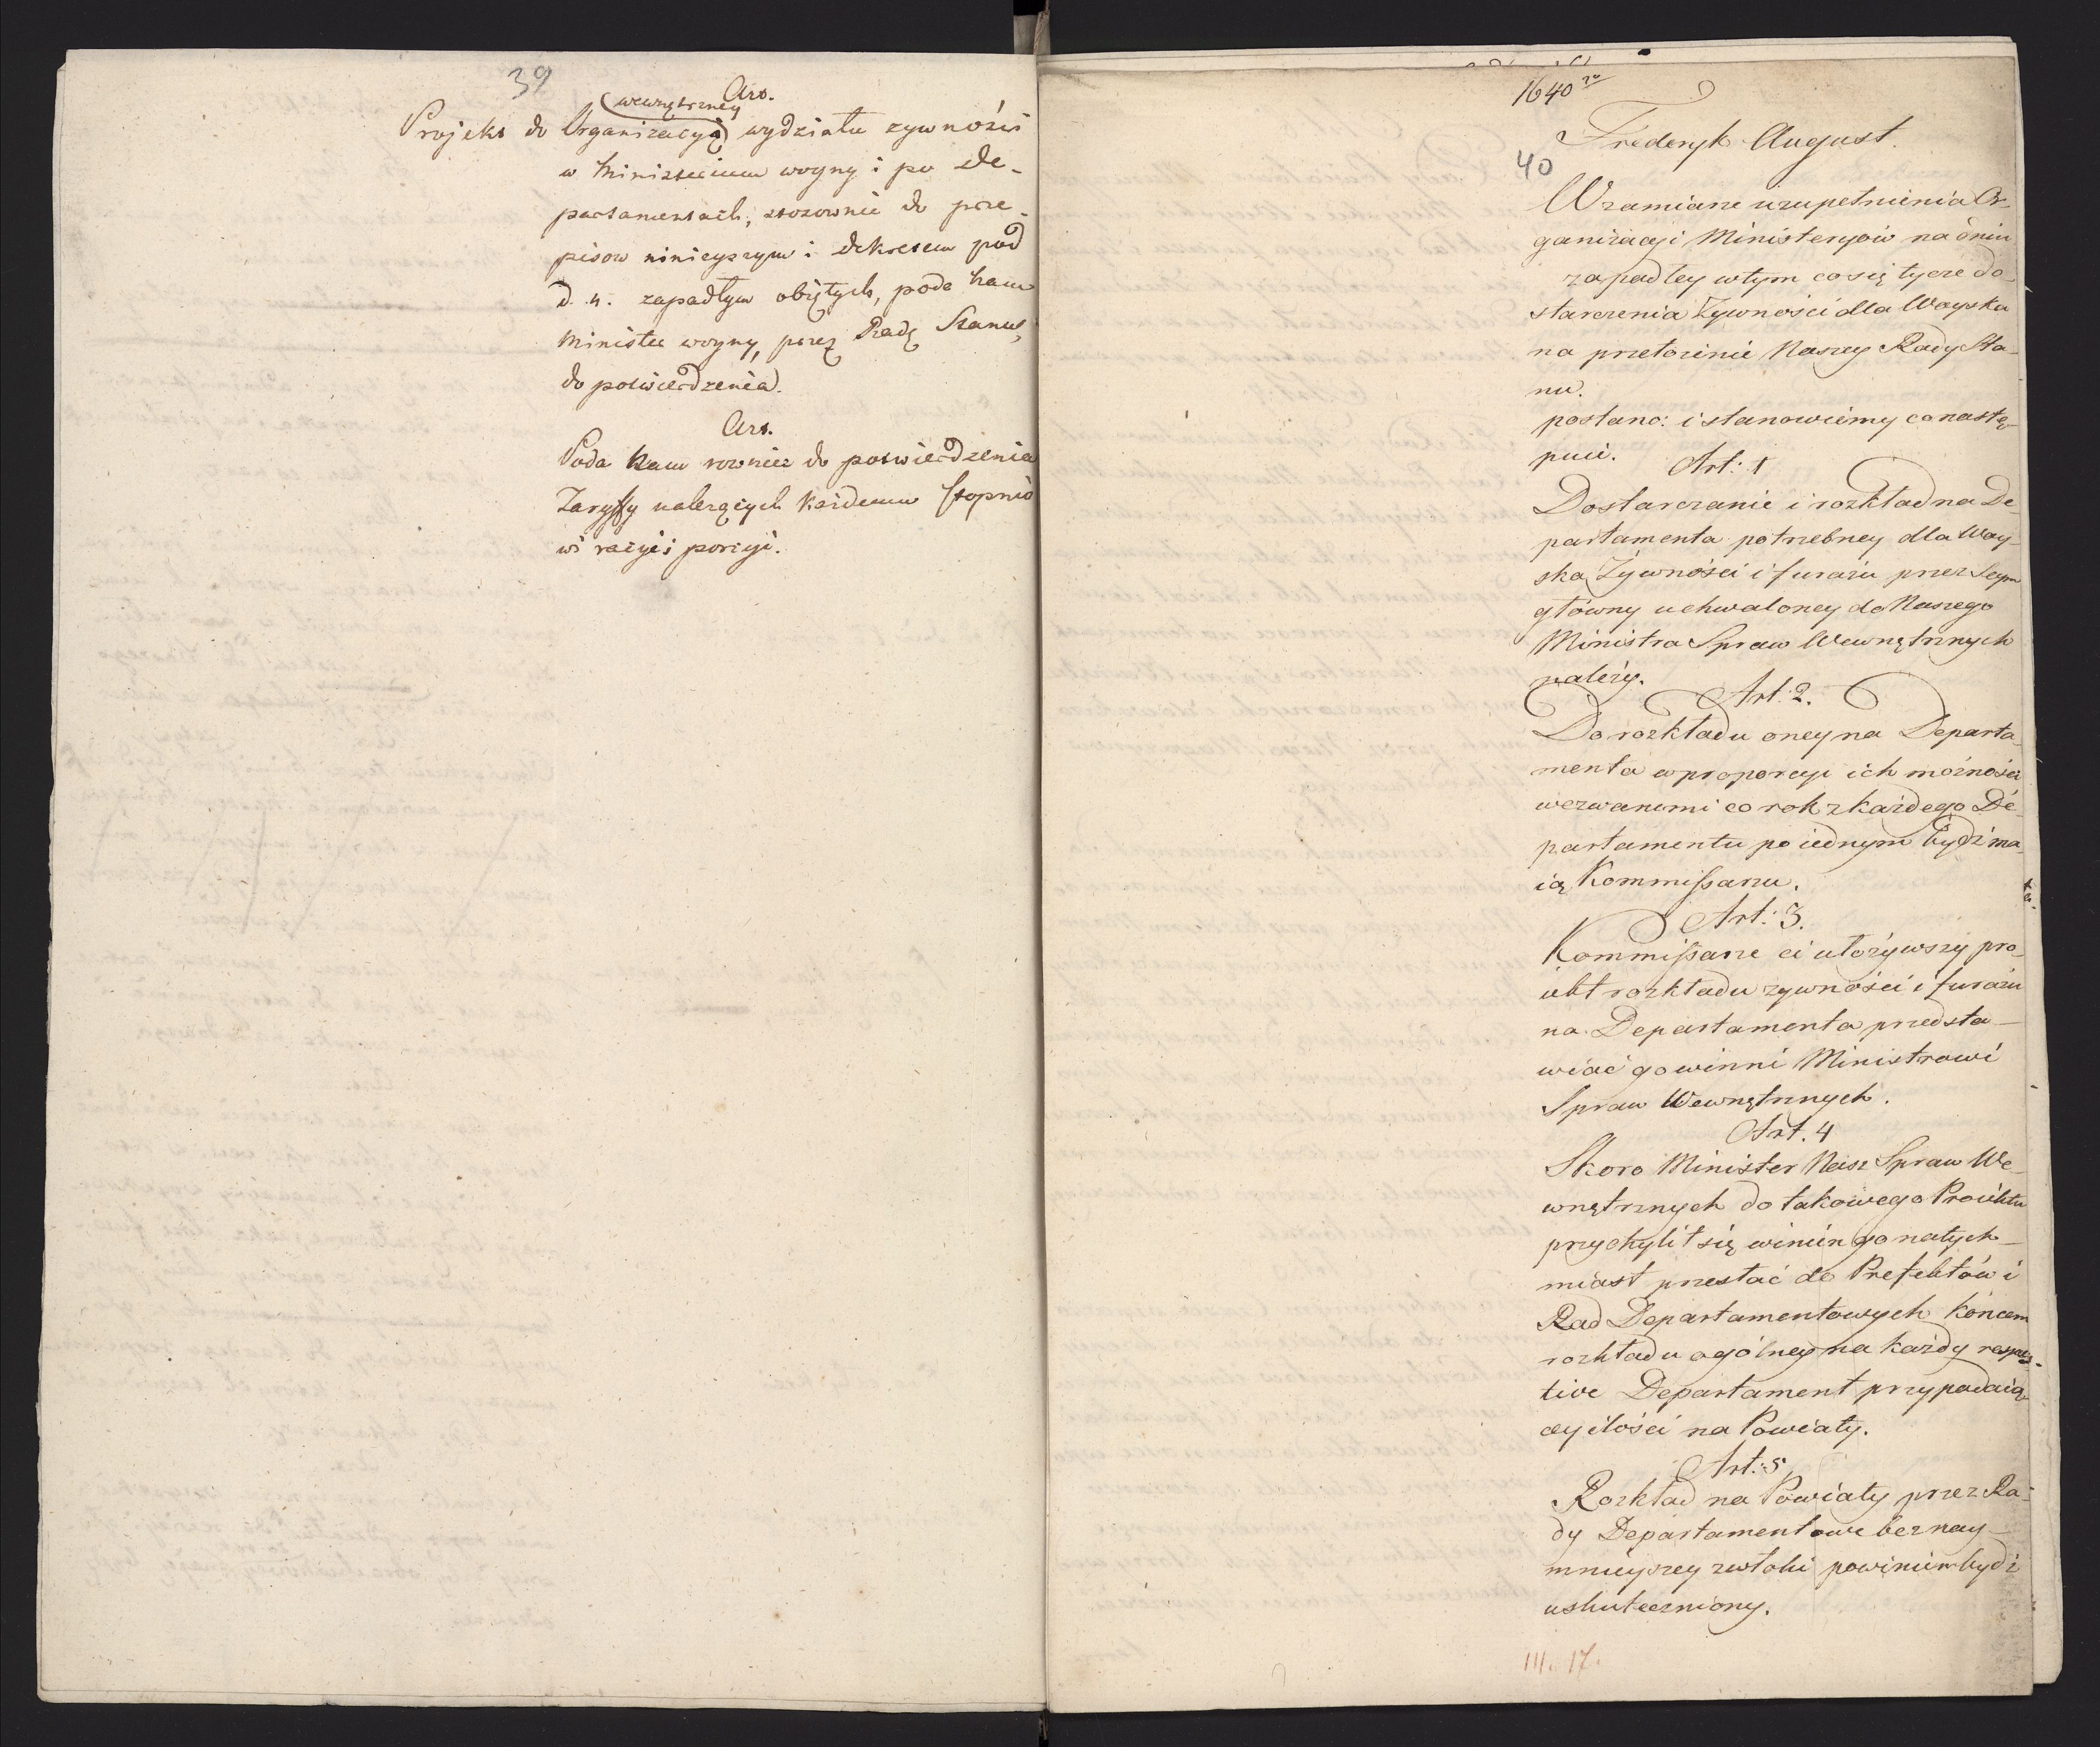 39
Art.
wewnętrzney
Projekt do Organizacyi wydziału zywności
w Ministerium woyny i po de-
partamentach, stosownie do prze-
pisow ninieyszym i dekretem pod
d. n. zapadłym obiętych, poda Nam
Minister woyny, przez Radę Stanu,
do potwierdzenia.
Art.
Poda Nam rownież do potwierdzenia
Taryffy należących każdemu stopnio
wi racyi i porcyi.
1640
Frederyk August.
40
W zamiarze uzupełnienia Or-
ganizacyi Ministeryów na dniu
zapadłey w tym co się tycze do-
starczenia Żywności dla Woyska
na przełożenie Naszey Rady Sta-
nu.
postano: i stanowiemy co nastę-
puie.
Art: 1
Dostarczanie i rozkład na De-
partamenta potrzebney dla Woy-
ska Żywności i furażu przez Seym
główny uchwaloney do Naszego
Ministra Spraw Wewnętrznych
należy.
Art: 2.
Do rozkładu oney na Departa-
menta w proporcyi ich możności
wezwanemi co rok z każdego De-
partamentu po iednym bydź ma-
ią Kommissarzu.
Art: 3.
Kommissarze ci ułożywszy pro-
iekt rozkładu zywności i furażu
na Departamenta przedsta-
wiać go winni Ministrowi
Spraw Wewnętrznych.
Art. 4
Skoro Minister Nasz Spraw We-
wnętrznych do takowego Proiektu
przychylił się winien go natych-
miast przesłać do Prefektów i
Rad Departamentowych końcem
rozkładu ogólney na każdy respec-
tive Departament przypadaią-
cey ilości na Powiaty.
Art: 5
Rozkład na Powiaty przez Ra-
dy Departamentowe bez nay-
mnieyszey zwłoki powinien bydź
uskuteczniony.
III. 17.